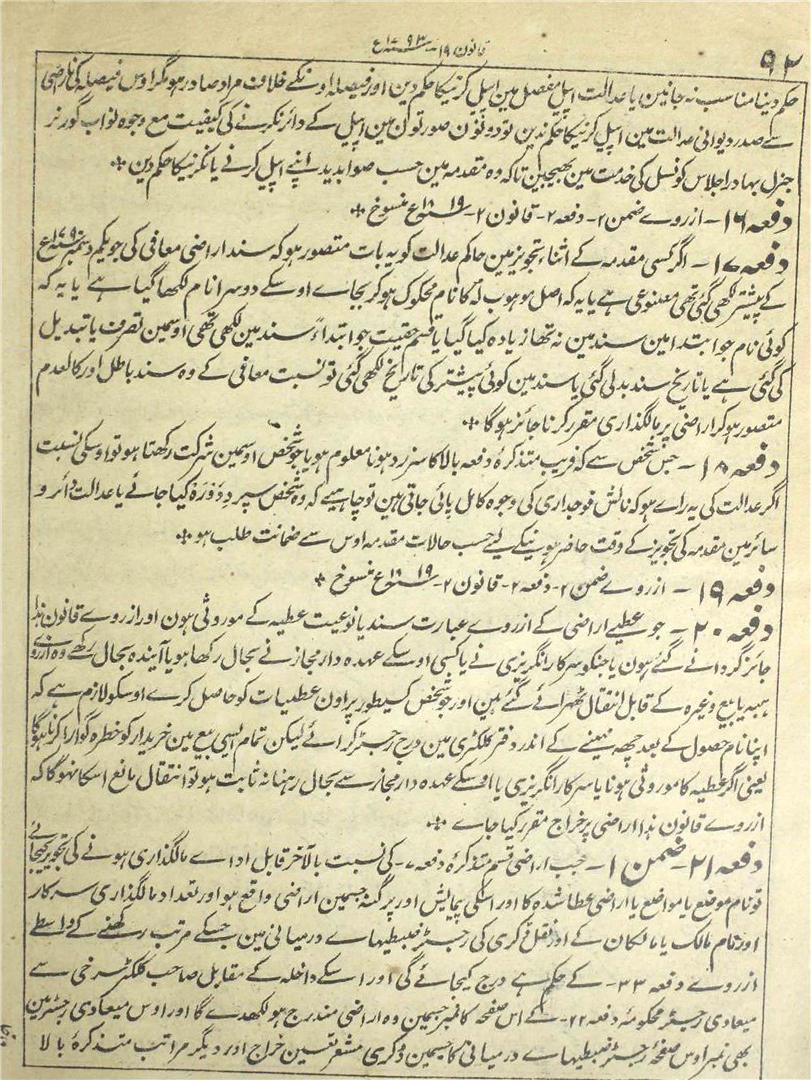 ۹۲
قانون ۱۹ - سنہ ۱۷۹۳ع
حکم دینا مناسب نہ جانین یا عدالت اپیل مفصل مین اپیل کرنیکا حکم دین اور فیصلہ اونکے خلاف مراد صادر ہو مگر اوس فیصلہ کی ناراضی
سے صدر دیوانی عدالت مین اپیل کرنیکا حکم ندین تو دونون صورتون مین اپیل کے دائر نکرنے کی کیفیت مع وجوہ نواب گورنر
جنرل بہادر اجلاس کونسل کی خدمت مین بھیجین تاکہ وہ مقدمہ مین حسب صوابدید اپنے اپیل کرنے یا نکرنیکا حکم دین ⁘
دفعہ ۱۶ - ازروے ضمن ۲ - دفعہ ۲ - قانون ۲ - سنہ ۱۸۱۹ع منسوخ ⁘
دفعہ ۱۷ - اگر کسی مقدمہ کے اثناء تجویز مین حاکم عدالت کو یہ بات متصور ہو کہ سند اراضی معافی کی جو یکم دسمبر سنہ ۱۷۹۰ع
کے پیشتر لکھی گئی تھی مصنوعی ہے یا یہ کہ اصل موہوب لہ کا نام محکوک ہوکر بجاے اوسکے دوسرا نام لکھا گیا ہے یا یہ کہ
کوئی نام جو ابتدا مین سند مین نہ تھا زیادہ کیا گیا یا قسم حقیت جو ابتداءً سند مین لکھی تھی اوسمین تصرف یا تبدیل
کی گئی ہے یا تاریخ سند بدلی گئی یا سند مین کوئی پیشتر کی تاریخ لکھی گئی تو نسبت معافی کے وہ سند باطل اور کالعدم
متصور ہوکر اراضی پر مالگذاری مقرر کرنا جائز ہوگا ⁘
دفعہ ۱۸ - جس شخص سے کہ فریب متذکرۂ دفعہ بالا کا سرزد ہونا معلوم ہو یا جو شخص اوسمین شرکت رکھتا ہو تو اوسکی نسبت
اگر عدالت کی یہ راے ہو کہ نالش فوجداری کی وجوہ کامل پائی جاتی ہین تو چاہیے کہ وہ شخص سپرد دورہ کیا جائے یا عدالت دائر و
سائر مین مقدمہ کی تجویز کے وقت حاضر ہونیکے لیے حسب حالات مقدمہ اوس سے ضمانت طلب ہو ⁘
دفعہ ۱۹ - ازروے ضمن ۲ - دفعہ ۲ - قانون ۲ - سنہ ۱۸۱۹ع منسوخ ⁘
دفعہ ۲۰ - جو عطیے اراضی کے ازروے عبارت سند یا نوعیت عطیہ کے موروثی ہون اور ازروے قانون ہذا
جائز گردانے گئے ہون یا جنکو سرکار انگریزی نے یا کسی اوسکے عہدہ دار مجاز نے بحال رکھا ہو یا آیندہ بحال رکھے وہ ازروے
ہبہ یا بیع وغیرہ کے قابل انتقال ٹھہرائے گئے ہین اور جو شخص کسیطور پر اون عطیات کو حاصل کرے اوسکو لازم ہے کہ
اپنا نام حصول کے بعد چھہ مہینے کے اندر دفتر کلکٹری مین درج رجسٹر کرائے لیکن تمام ایسی بیع مین خریدار کو خطرہ گوارا کرنا ہوگا
یعنی اگر عطیہ کا موروثی ہونا یا سرکار انگریزی یا اوسکے عہدہ دار مجاز سے بحال رہنا نہ ثابت ہو تو انتقال مانع اسکا نہوگا کہ
ازروے قانون ہذا اراضی پر خراج مقرر کیا جاے ⁘
دفعہ ۲۱ - ضمن ۱ - جب اراضی قسم متذکرۂ دفعہ ۷ - کی نسبت بالآخر قابل اداے مالگذاری ہونے کی تجویز کیجائے
تو نام موضع یا مواضع یا اراضی عطا شدہ کا اور اسکی پیمایش اور پرگنہ جسمین اراضی واقع ہو اور تعداد مالگذاری سرکار
اور نام مالک یا مالکان کے اور نقل ڈگری کی رجسٹر ضبطیہاے درمیانی مین جسکے مرتب رکھنے کے واسطے
ازروے دفعہ ۳۳ - کے حکم ہے درج کیجائے گی اور اسکے داخلہ کے مقابل صاحب کلکٹر سرخی سے
میعادی رجسٹر محکومۂ دفعہ ۲۲ - کے اس صفحہ کا نمبر جسمین وہ اراضی مندرج ہو لکھدے گا اور اوس میعادی رجسٹر مین
بھی نمبر اوس صفحۂ رجسٹر ضبطیہاے درمیانی کا جسمین ڈگری مشعر تعین خراج اور دیگر مراتب متذکرۂ بالا